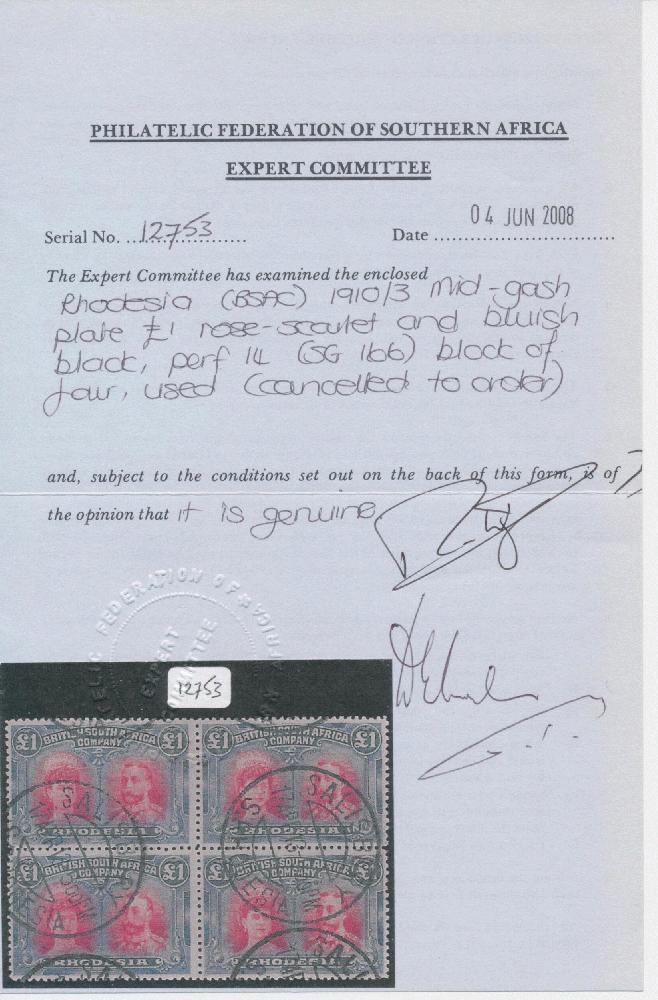 PHILATELIC FEDERATION OF SOUTHERN AFRICA
EXPERT COMMITTEE
Serial No. ...12753...............
Date ................................. 04 JUN 2008
The Expert Committee has examined the enclosed
Rhodesia (BSAC) 1910/3 mid-gash
plate £1 rose-scarlet and bluish
black, perf 14 (SG 166) block of
four, used (cancelled to order)
and, subject to the conditions set out on the back of this form, is of
the opinion that it is genuine
FEDERATION OF
EXPERT
12753
£1 BRITISH SOUTH AFRICA COMPANY £1
RHODESIA
£1 BRITISH SOUTH AFRICA COMPANY £1
RHODESIA
£1 BRITISH SOUTH AFRICA COMPANY £1
RHODESIA
£1 BRITISH SOUTH AFRICA COMPANY £1
RHODESIA